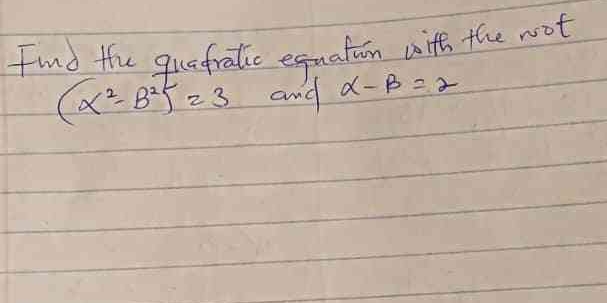 Find the quafratic equation with the root
(α²- B²) = 3 and α - B = 2